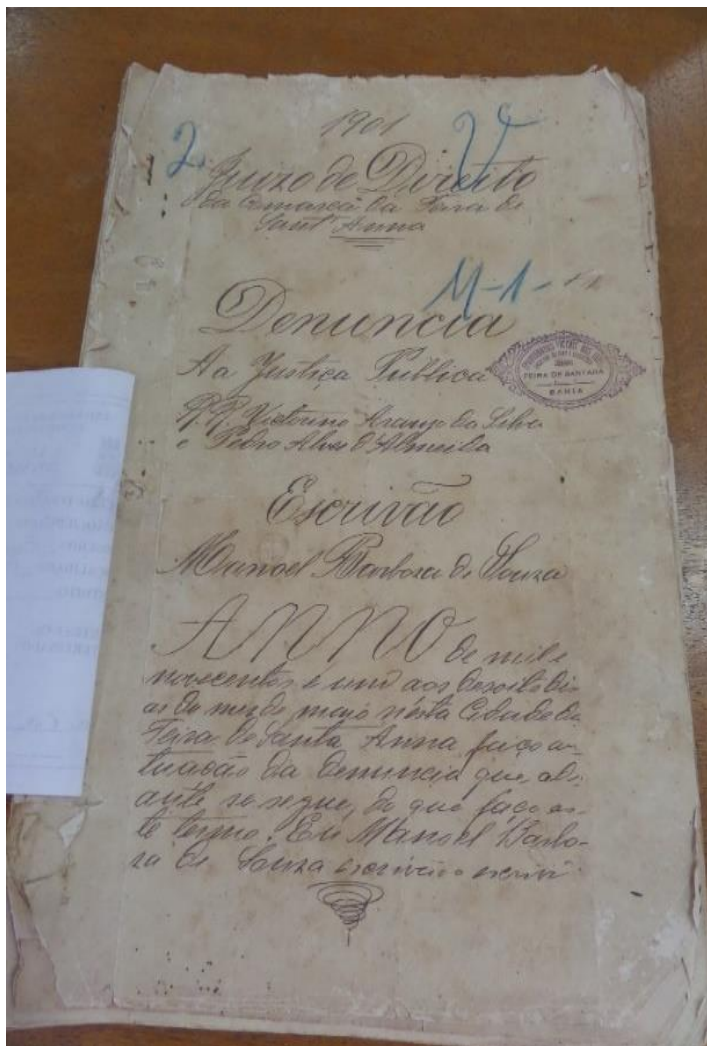 1901
2
V
Juizo de Direito
da Comarca da Feira de
Sant'Anna
M-1-
Denuncia
A a Justiça Publica
FEIRA DE SANTANA
BAHIA
R.R. Victorino Araujo da Silva
e Pedro Alves d'Almeida
Escrivão
Manoel Barboza de Souza
ANNO de mil e
novecentos e um aos desoito di
as do mez de maio nésta Cidade da
Feira de Santa Anna faço au-
tuacão da denuncia que, adi-
ante se segue, do que faço es-
te termo. Eu Manoel Barbo-
za de Souza escrivão o escrevi